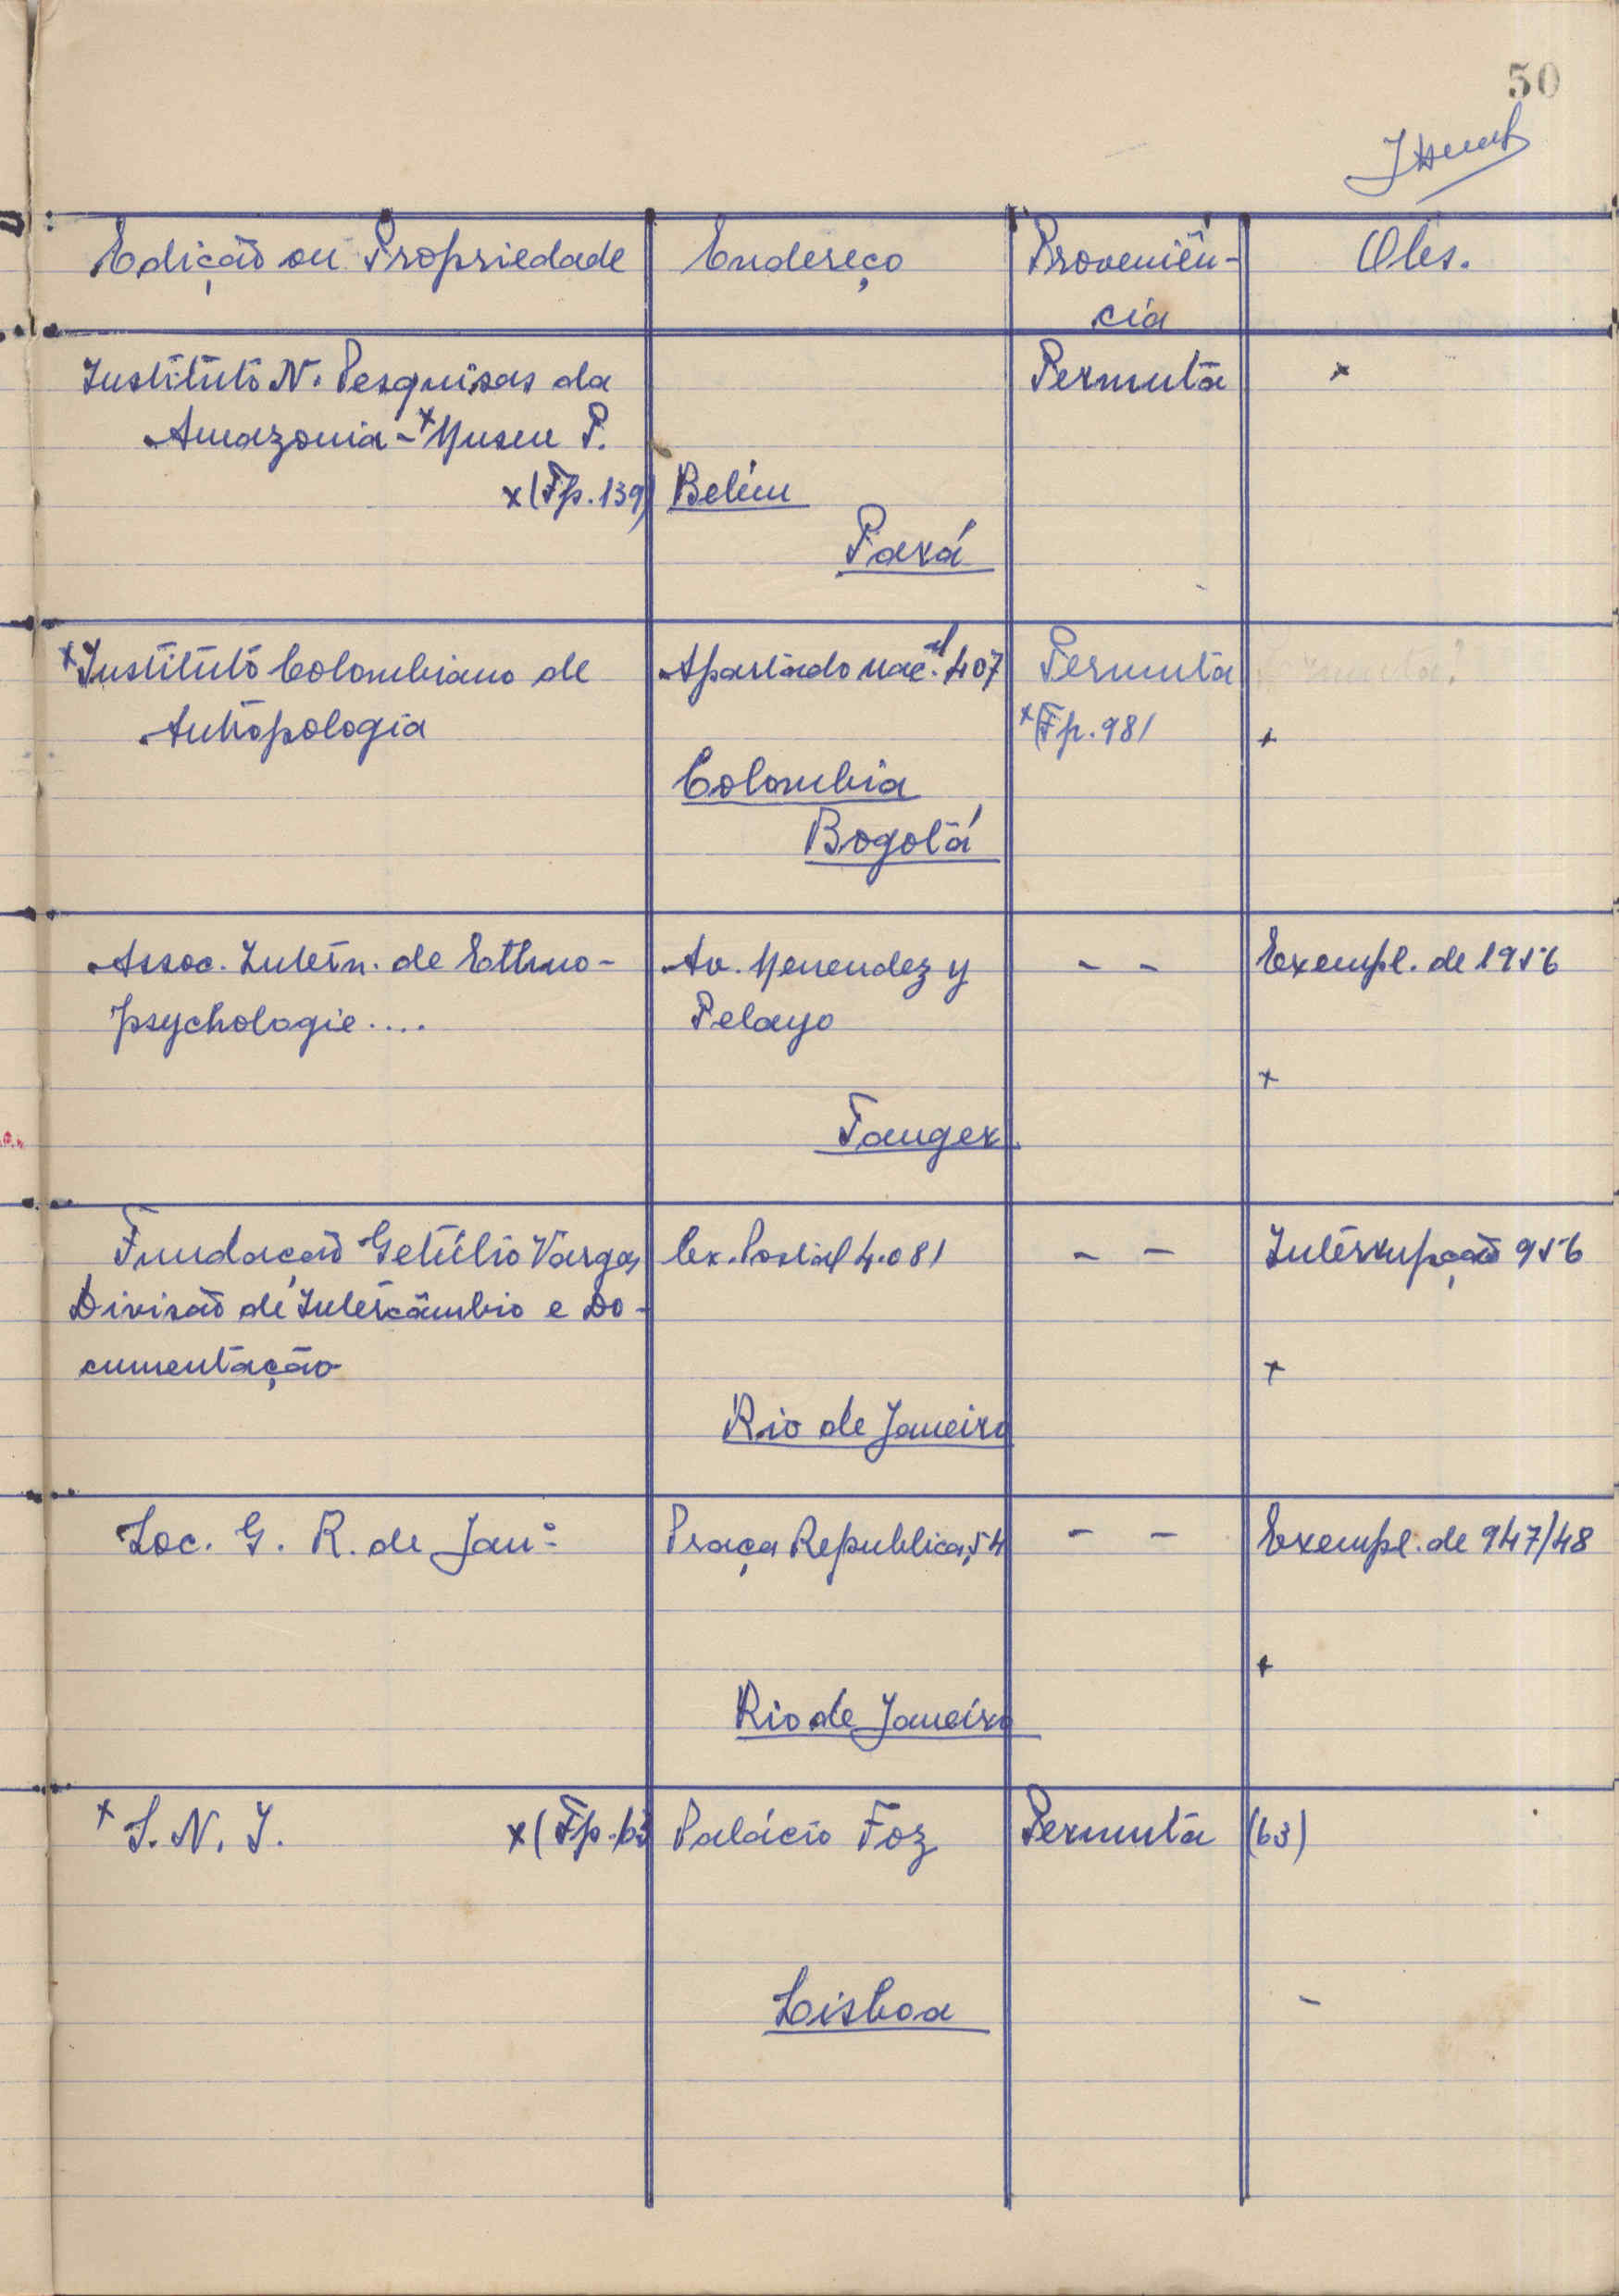 50
Edição ou Propriedade Endereço Proveniên- Obs.
cia
Instituto N. Pesquisas da Permuta x
Amazonia - x Museu P.
x (Fp. 139) Belém
Pará
x Instituto Colombiano de Apartado nac.al 407 Permuta
Antropologia x (Fp. 981 x
Colombia
Bogotá
Assoc. Intern. de Ethno- Av. Menendez y - - Exempl. de 1956
psychologie.... Pelayo
x
Tanger
Fundação Getúlio Vargas Cx. Postal 4.081 - - Interrupção 956
Divisão de Intercâmbio e Do-
cumentação x
Rio de Janeiro
Soc. G. R. de Jan.º Praça Republica, 54 - - Exempl. de 947/48
x
Rio de Janeiro
x S. N. I. x (Fp. 63 Palácio Foz Permuta (63)
Lisboa -